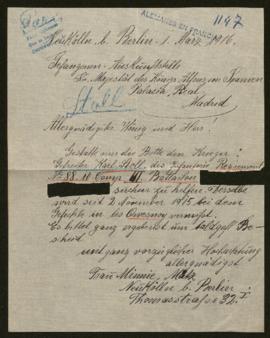 ALEMANES EN FRANCIA
1147
Neukölln b. Berlin 1. März 1916.
Gefangenen-Auskunftstelle
Sr. Majestät des Königs Alfons von Spanien
Palacio Real
Madrid
Stoll
Allergnädigster König und Herr!
Gestatte mir die Bitte den Krieger:
Gefreiter Karl Stoll, des Infanterie Regiment
No 88. 11 Comp. III. Bataillon
suchen zu helfen. Derselbe
wird seit 2 November 1915 bei dem
Gefechte in vermisst.
Es bittet ganz ergebenst um Bescheid
und ganz vorzüglicher Hochachtung
allergnädigst
Frau Minnie
Neukölln b. Berlin
Thomasstrasse 32 I